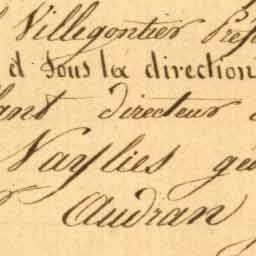 Villegontier Préf
et sous la direction
directeur
Naylies gé
Audran